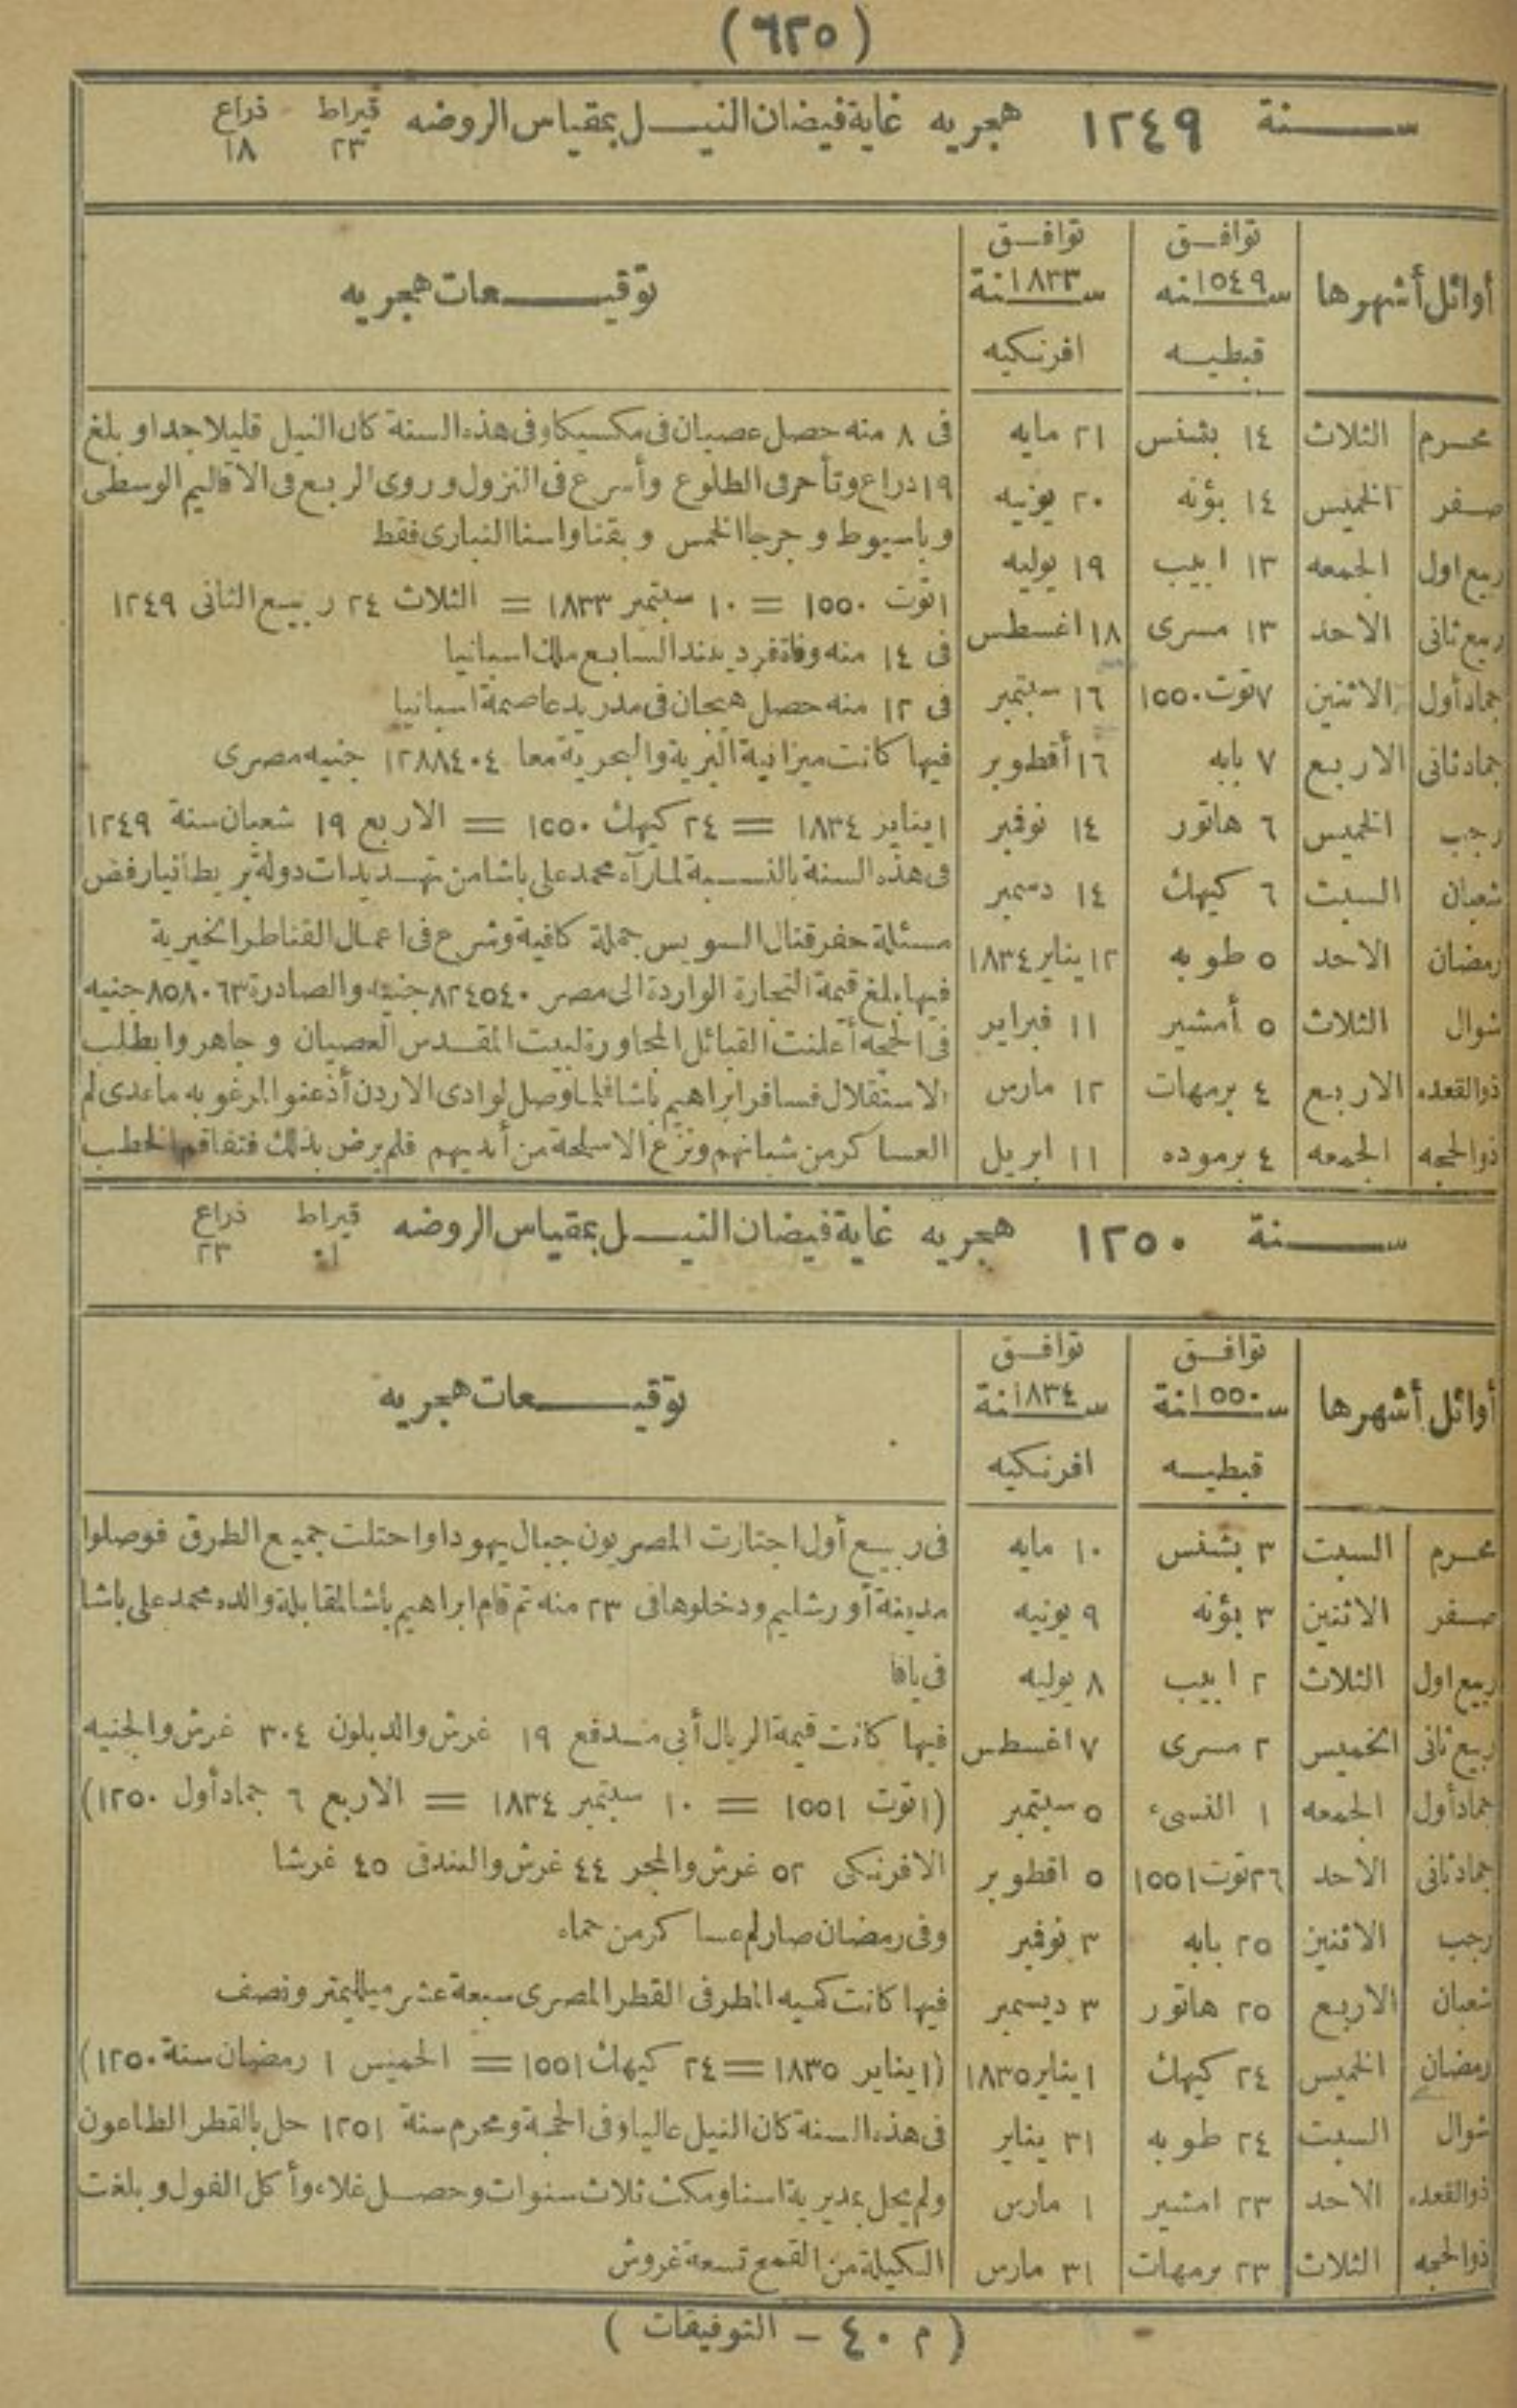 (٦٢٥)
سنة ١٢٤٩ هجريه غاية فيضان النيل بمقياس الروضه قيراط ٢٣ ذراع ١٨
أوائل أشهرها
توافق سنه ١٥٤٩ قبطيه
توافق سنة ١٨٣٣ افرنكيه
توقيعات هجريه
محرم الثلاث ١٤ بشنس ٢١ مايه
صفر الخميس ١٤ بؤنه ٢٠ يونيه
ربيع اول الجمعه ١٣ ابيب ١٩ يوليه
ربيع ثانى الاحد ١٣ مسرى ١٨ اغسطس
جماد أول الاثنين ٧ توت ١٥٥٠ ١٦ سبتمبر
جماد ثانى الاربع ٧ بابه ١٦ أقطوبر
رجب الخميس ٦ هاتور ١٤ نوفمبر
شعبان السبت ٦ كيهك ١٤ دسمبر
رمضان الاحد ٥ طوبه ١٢ يناير ١٨٣٤
شوال الثلاث ٥ أمشير ١١ فبراير
ذو القعده الاربع ٤ برمهات ١٢ مارس
ذو الحجه الجمعه ٤ برموده ١١ ابريل
فى ٨ منه حصل عصيان فى مكسيكا وفى هذه السنة كان النيل قليلا جدا وبلغ
١٩ دراع وتأخر فى الطلوع وأسرع فى النزول وروى الربع فى الاقاليم الوسطى
وباسيوط وجرجا الخمس وبقنا واسنا النبارى فقط
١ توت ١٥٥٠ = ١٠ سبتمبر ١٨٣٣ = الثلاث ٢٤ ربيع الثانى ١٢٤٩
فى ١٤ منه وفاة فرديندد السابع ملك اسبانيا
فى ١٢ منه حصل هيجان فى مدريد عاصمة اسبانيا
فيها كانت ميزانية البرية والبحرية معا ١٢٨٨٤٠٤ جنيه مصرى
١ يناير ١٨٣٤ = ٢٤ كيهك ١٥٥٠ = الاربع ١٩ شعبان سنة ١٢٤٩
فى هذه السنة بالنسبة لما رآه محمد على باشا من تهديدات دولة بريطانيا رفض
مسئلة حفر قنال السويس جملة كافية وشرع فى اعمال القناطر الخيرية
فيها بلغ قيمة التجارة الواردة الى مصر ٨٢٤٥٤٠ جنيه والصادرة ٨٥٨٠٦٣ جنيه
فى الحجه أعلنت القبائل المجاورة لبيت المقدس العصيان وجاهروا بطلب
الاستقلال فسافر ابراهيم باشا فلما وصل لوادى الاردن أذعنوا لمرغوبه ماعدى لم
العساكر من شبانهم ونزع الاسلحة من أيديهم فلم يرض بذلك فتفاقم الخطب
سنة ١٢٥٠ هجريه غاية فيضان النيل بمقياس الروضه قيراط ذراع ٢٣
أوائل أشهرها
توافق سنة ١٥٥٠ قبطيه
توافق سنة ١٨٣٤ افرنكيه
توقيعات هجريه
محرم السبت ٣ بشنس ١٠ مايه
صفر الاثنين ٣ بؤنه ٩ يونيه
ربيع اول الثلاث ٢ ابيب ٨ يوليه
ربيع ثانى الخميس ٢ مسرى ٧ اغسطس
جماد أول الجمعه ١ النسىء ٥ سبتمبر
جماد ثانى الاحد ٢٦ توت ١٥٥١ ٥ اقطوبر
رجب الاثنين ٢٥ بابه ٣ نوفمبر
شعبان الاربع ٢٥ هاتور ٣ ديسمبر
رمضان الخميس ٢٤ كيهك ١ يناير ١٨٣٥
شوال السبت ٢٤ طوبه ٣١ يناير
ذو القعده الاحد ٢٣ امشير ١ مارس
ذو الحجه الثلاث ٢٣ برمهات ٣١ مارس
فى ربيع أول اجتازت المصريون جبال يهودا واحتلت جميع الطرق فوصلوا
مدينة أورشليم ودخلوها فى ٢٣ منه ثم قام ابراهيم باشا لمقابلة والده محمد على باشا
فى يافا
فيها كانت قيمة الريال أبى مدفع ١٩ غرش والدبلون ٣٠٤ غرش والجنيه
(١ توت ١٥٥١ = ١٠ سبتمبر ١٨٣٤ = الاربع ٦ جماد أول ١٢٥٠)
الافرنكى ٥٢ غرش والمجر ٤٤ غرش والبندقى ٤٥ غرشا
وفى رمضان صار لم عساكر من حماه
فيها كانت كميه المطر فى القطر المصرى سبعة عشر ميلليمتر ونصف
(١ يناير ١٨٣٥ = ٢٤ كيهك ١٥٥١ = الخميس ١ رمضان سنة ١٢٥٠)
فى هذه السنة كان النيل عاليا وفى الحجة ومحرم سنة ١٢٥١ حل بالقطر الطاعون
ولم يحل بمديرية اسنا ومكث ثلاث سنوات وحصل غلاء وأكل الفول وبلغت
الكيلة من القمح تسعة غروش
(م ٤٠ - التوفيقات)